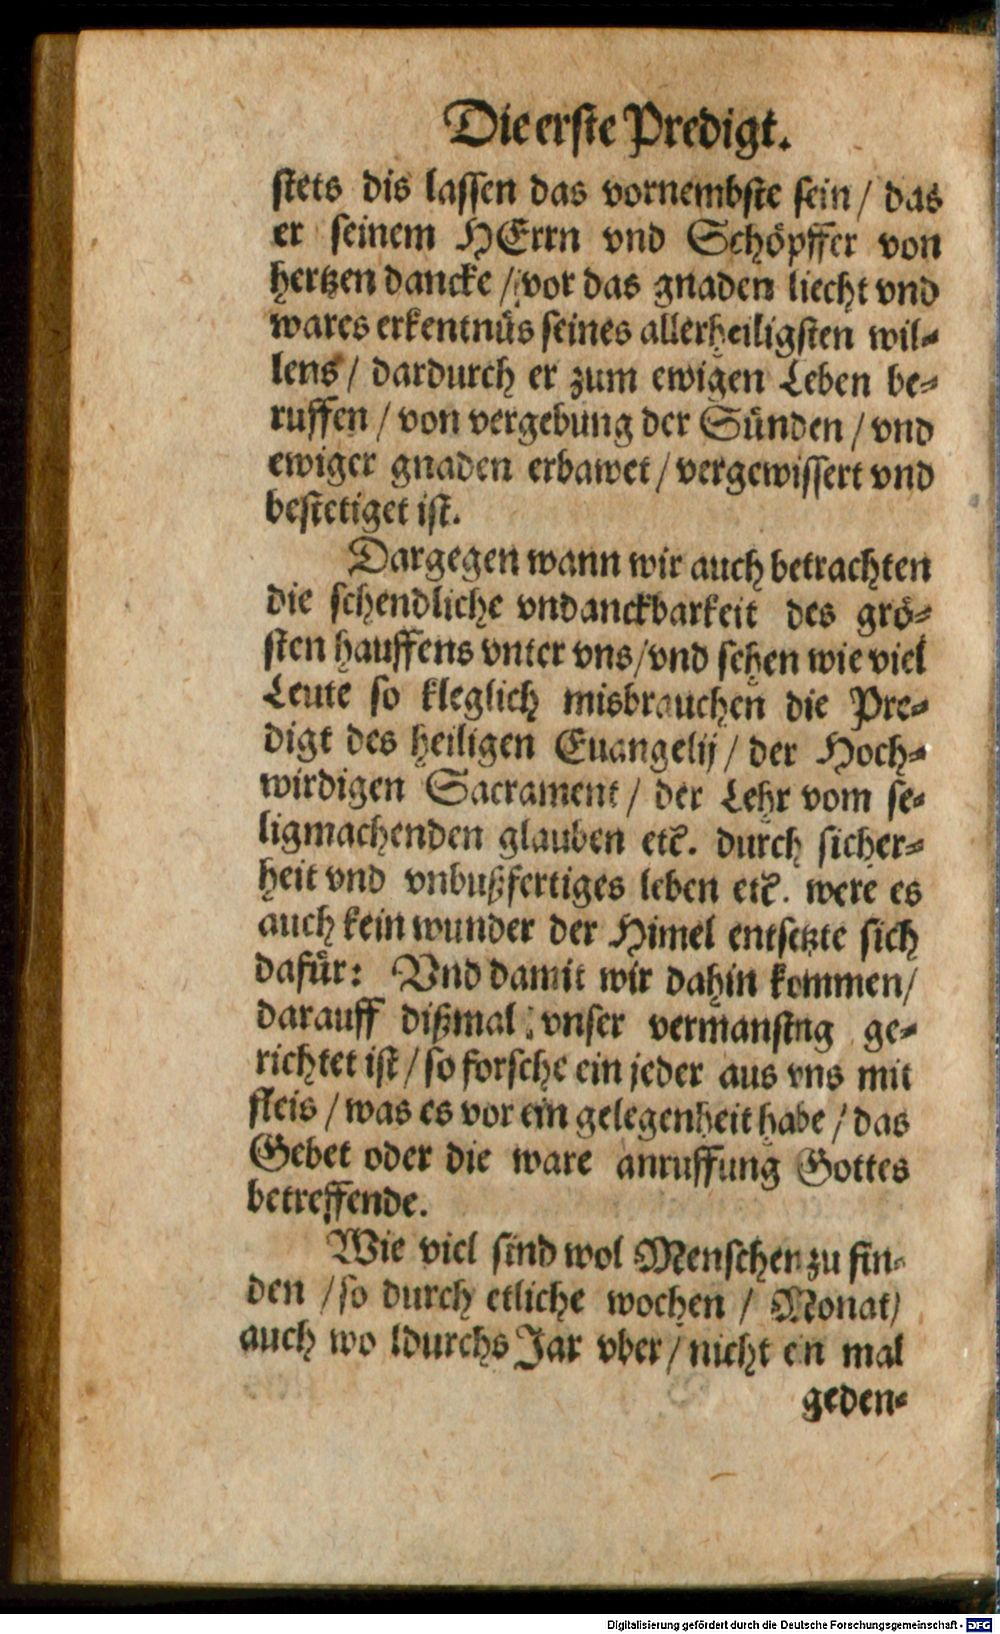 Die erste Predigt.
stets dis lassen das vornembste sein / das
er seinem HErrn vnd Schöpffer von
hertzen dancke / vor das gnaden liecht vnd
wares erkentnüs seines allerheiligsten wil-
lens / dardurch er zum ewigen Leben be-
ruffen / von vergebung der Sünden / vnd
ewiger gnaden erbawet / vergewissert vnd
bestetiget ist.
Dargegen wann wir auch betrachten
die schendliche vndanckbarkeit des grö-
sten hauffens vnter vns / vnd sehen wie viel
Leute so kleglich misbrauchen die Pre-
digt des heiligen Euangelij / der Hoch-
wirdigen Sacrament / der Lehr vom se-
ligmachenden glauben etc. durch sicher-
heit vnd vnbußfertiges leben etc. were es
auch kein wunder der Himel entsetzte sich
dafür: Vnd damit wir dahin kommen /
darauff dißmal vnser vermansng ge-
richtet ist / so forsche ein jeder aus vns mit
fleis / was es vor ein gelegenheit habe / das
Gebet oder die ware anruffung Gottes
betreffende.
Wie viel sind wol Menschen zu fin-
den / so durch etliche wochen / Monat /
auch wo ldurchs Jar vber / nicht ein mal
geden-
Digitalisierung gefördert durch die Deutsche Forschungsgemeinschaft - DFG